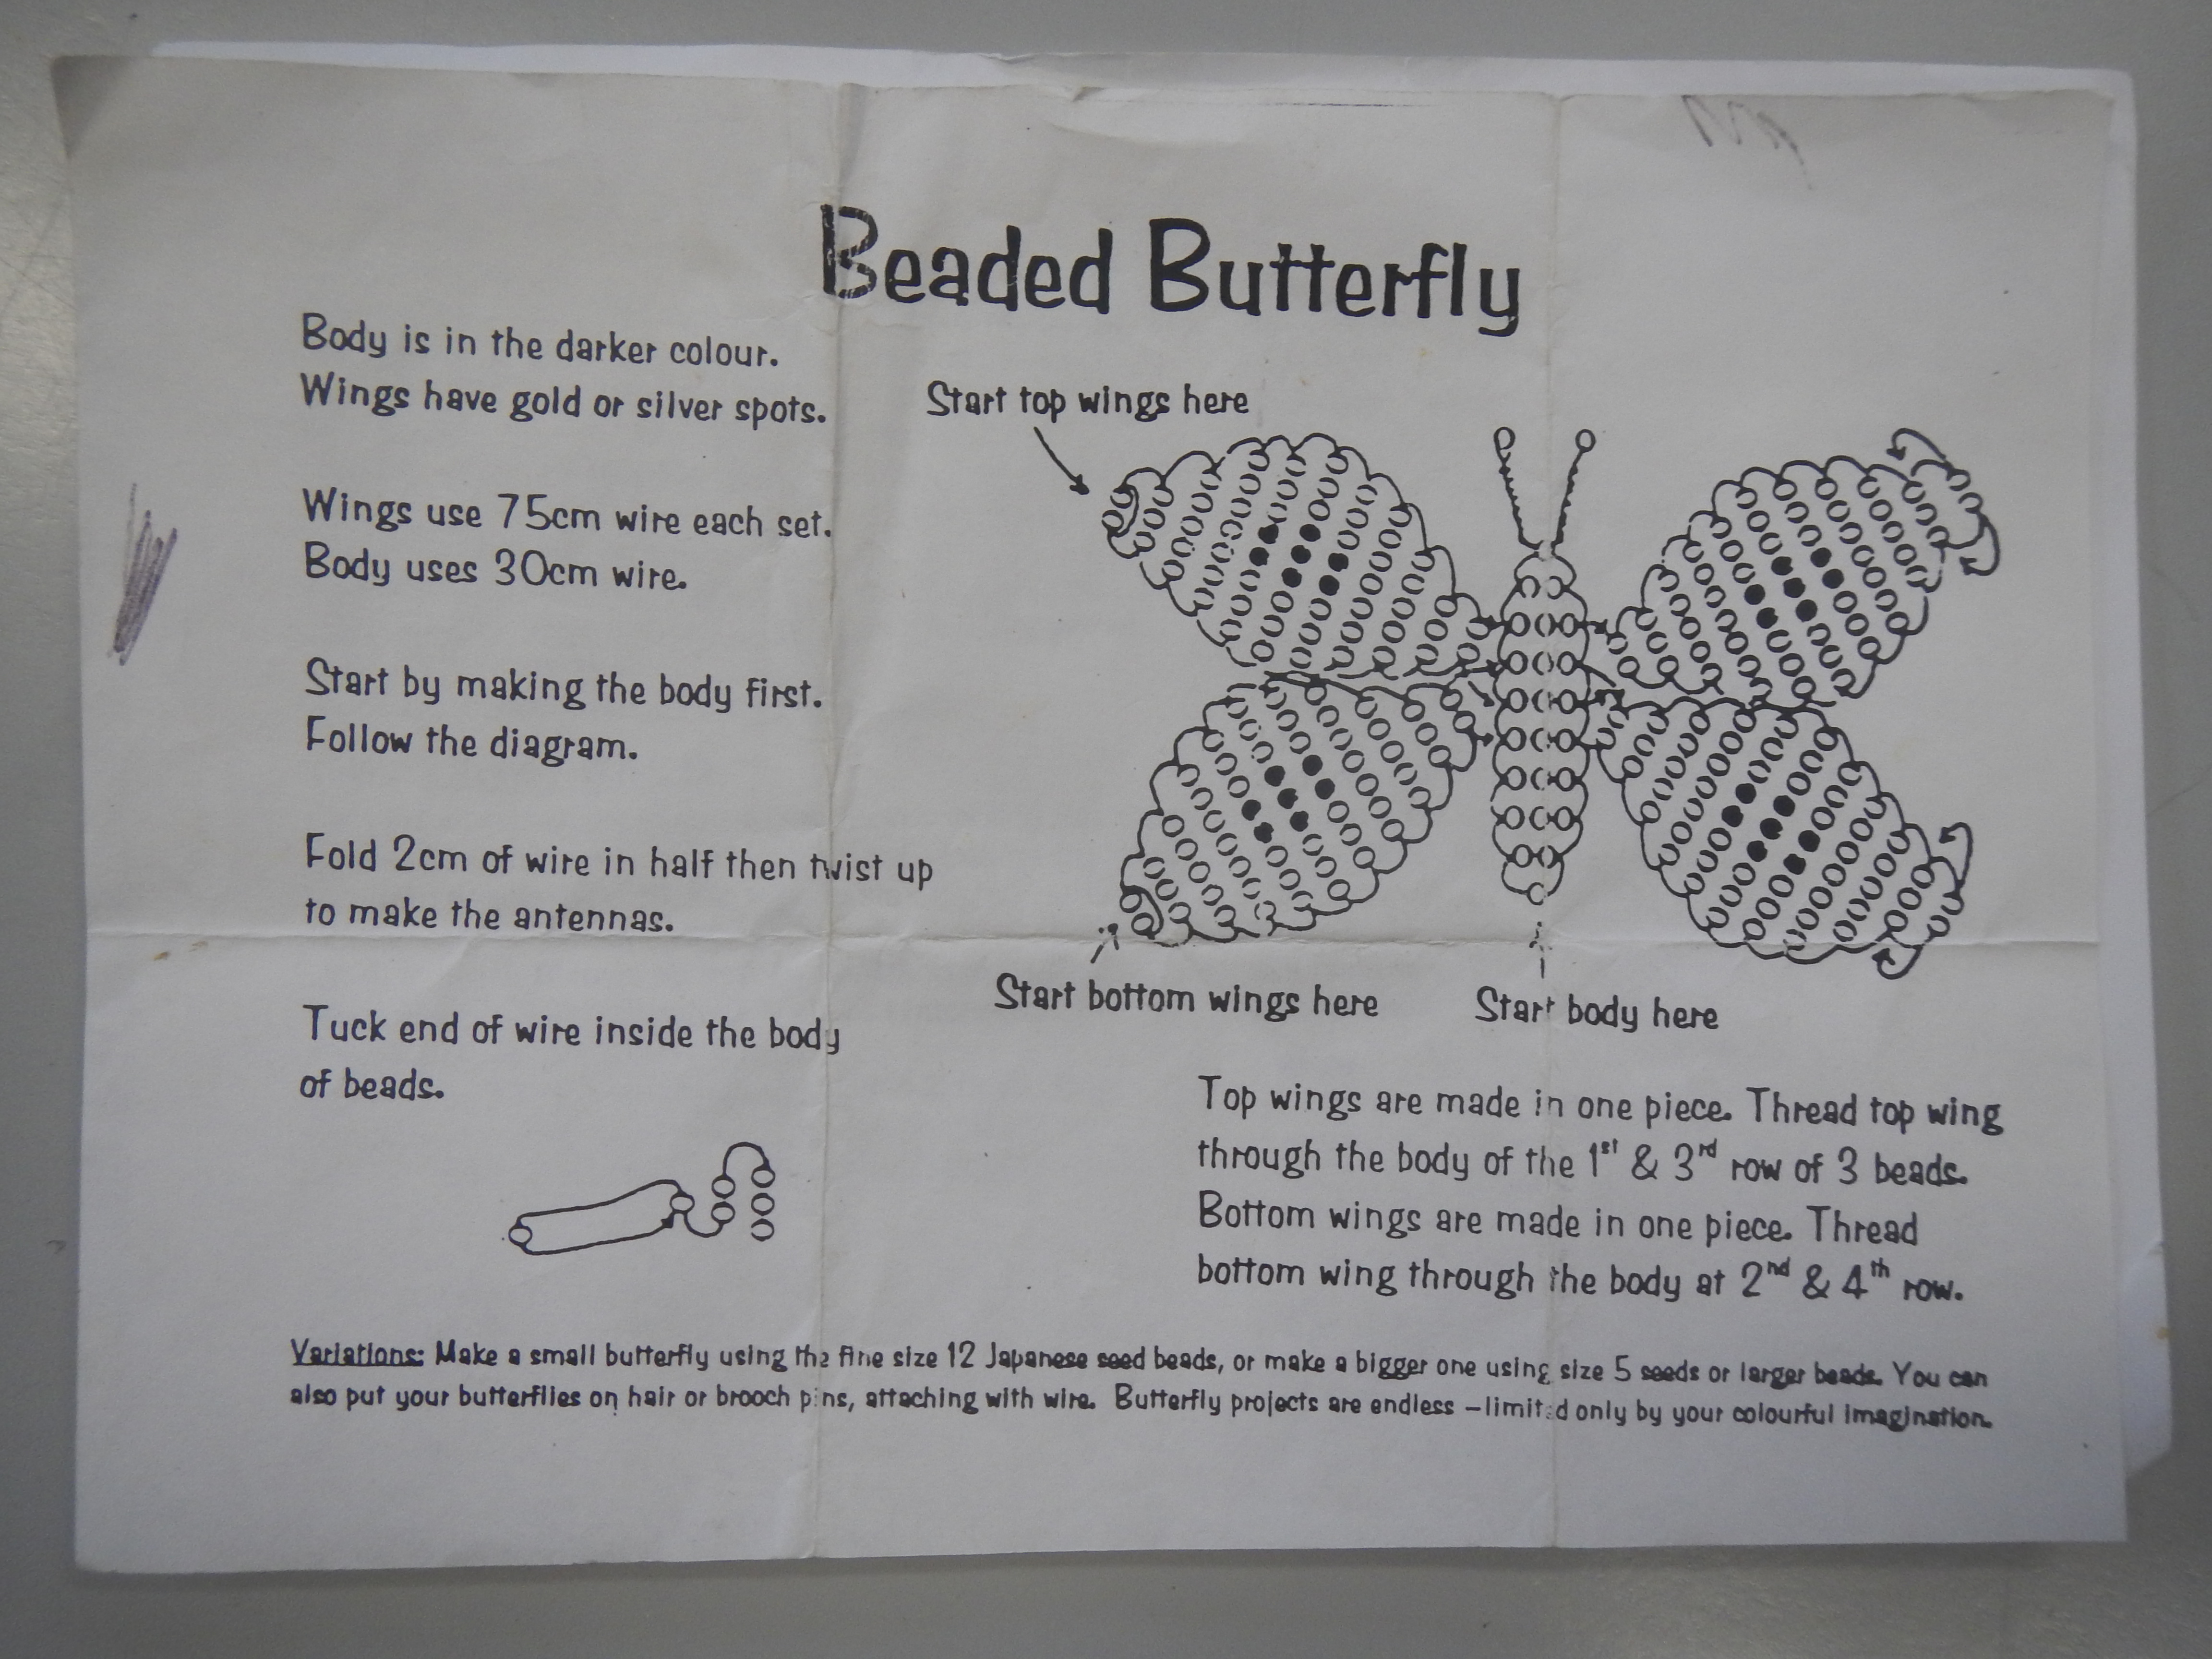 Beaded Butterfly
Body is in the darker colour.
Wings have gold or silver spots.
Wings use 75cm wire each set.
Body uses 30cm wire.
Start by making the body first.
Follow the diagram.
Fold 2cm of wire in half then twist up
to make the antennas.
Tuck end of wire inside the body
of beads.
Start top wings here
Start bottom wings here
Start body here
Top wings are made in one piece. Thread top wing
through the body of the 1st & 3rd row of 3 beads.
Bottom wings are made in one piece. Thread
bottom wing through the body at 2nd & 4th row.
Variations: Make a small butterfly using the fine size 12 Japanese seed beads, or make a bigger one using size 5 seeds or larger beads. You can
also put your butterflies on hair or brooch pins, attaching with wire. Butterfly projects are endless – limited only by your colourful imagination.